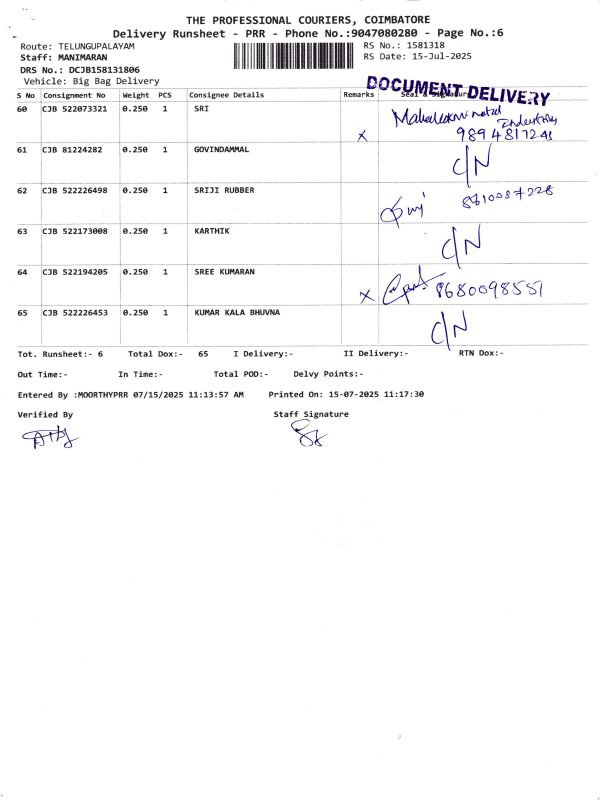 THE PROFESSIONAL COURIERS, COIMBATORE
Delivery Runsheet - PRR - Phone No.:9047080280 - Page No.:6
Route: TELUNGUPALAYAM RS No.: 1581318
Staff: MANIMARAN RS Date: 15-Jul-2025
DRS No.: DCJB158131806
Vehicle: Big Bag Delivery
DOCUMENT DELIVERY
S No Consignment No Weight PCS Consignee Details Remarks Seal & Signature
60 CJB 522073321 0.250 1 SRI
x
61 CJB 81224282 0.250 1 GOVINDAMMAL C/N
62 CJB 522226498 0.250 1 SRIJI RUBBER
63 CJB 522173008 0.250 1 KARTHIK C/N
64 CJB 522194205 0.250 1 SREE KUMARAN
x 8680098551
65 CJB 522226453 0.250 1 KUMAR KALA BHUVNA C/N
Tot. Runsheet:- 6 Total Dox:- 65 I Delivery:- II Delivery:- RTN Dox:-
Out Time:- In Time:- Total POD:- Delvy Points:-
Entered By :MOORTHYPRR 07/15/2025 11:13:57 AM Printed On: 15-07-2025 11:17:30
Verified By Staff Signature